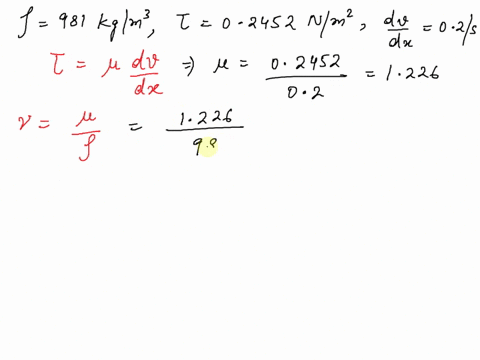 ρ = 981 kg/m³, τ = 0.2452 N/m², dv/dx = 0.2/s
τ = μ dv/dx ⇒ μ = 0.2452/0.2 = 1.226
ν = μ/ρ = 1.226/9.8